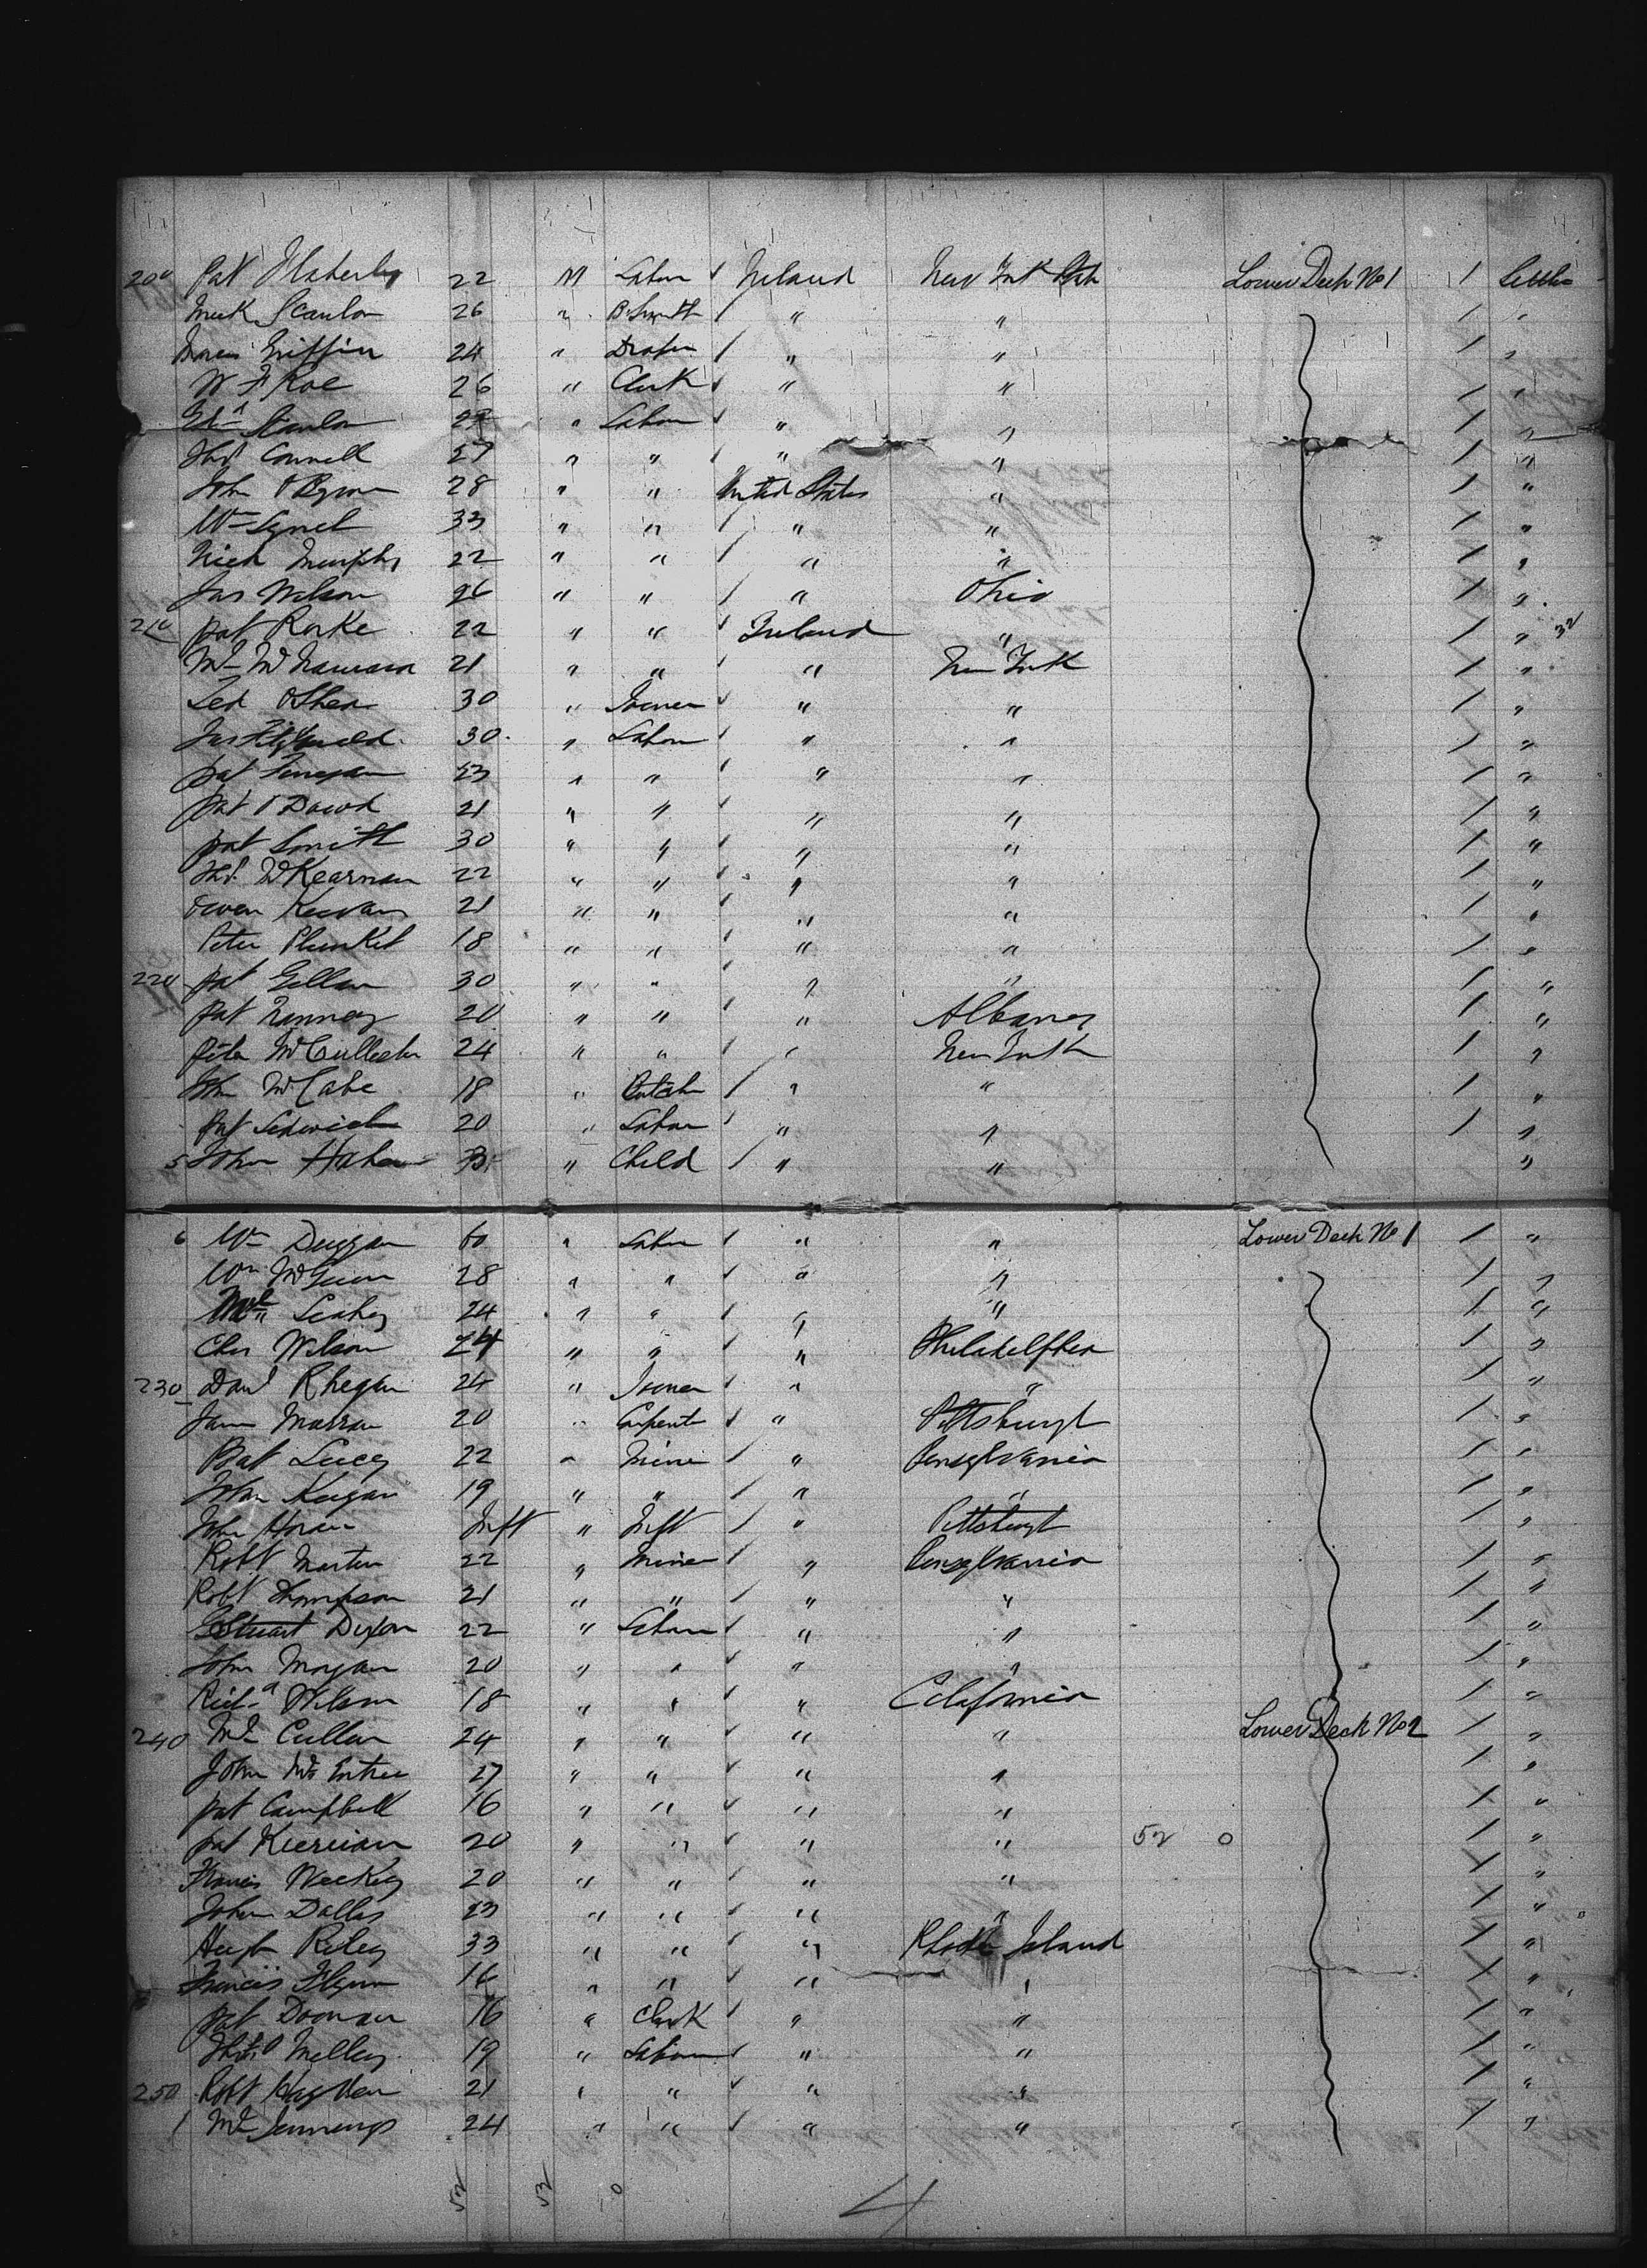 200 Pat Flaherty 22 M Labor ✓ Ireland New York State Lower Deck No 1 / Settler
Mick Scanlon 26 " B.Smith / " " / "
Griffin 24 " Draper / " " / "
W F Roe 26 " Clerk ✓ " " / "
Edd Scanlon " Labor ✓ " " / "
Thos Connell 27 " " / " " / "
John O Byrne 28 " " United States " / "
Wm Lynch 33 " " / " " / "
Nich Murphy 22 " " / " " / "
Jas Wilson 26 " " / " Ohio / "
210 Pat Rorke 22 " " ✓ Ireland " / " 32
Ml McNamara 21 " " " New York / "
O Shea 30 " Joiner ✓ " " / "
Jas Fitzgerald 30 " Labor ✓ " " / "
Pat Finegan 23 " " ✓ " " / "
Pat O Dowd 21 " " ✓ " " / "
Pat Smith 30 " " ✓ " " / "
Thos McKearnan 22 " " ✓ " " / "
Owen Keevan 21 " " ✓ " " / "
Peter Plunket 18 " " ✓ " " / "
220 Pat Gellan 30 " " ✓ " " / "
Pat Nanney 20 " " ✓ " Albany / "
Peter 24 " " ✓ " New York / "
John McCabe 18 " Butcher / " " / "
Pat 20 " Labor ✓ " " / "
5 John 3 " Child / " " "
6 Wm Duggan 60 " Labor ✓ " " Lower Deck No 1 / "
Wm 28 " " ✓ " " / "
Leahy 24 " " ✓ " " / "
Chas Wilson 24 " " ✓ " Philadelphia / "
230 Danl Rhegan 24 " Joiner ✓ " " / "
20 " Carpenter ✓ " Pittsburgh / "
Pat Lucey 22 " Miner / " Pensylvania / "
John Keegan 19 " " / " " / "
John Horan Inft " Inft / " Pittsburgh "
Robt Martin 22 " Miner / " Pensylvania / "
Robt Thompson 21 " " / " " / "
Stuart Dixon 22 " Labour ✓ " " / "
John Morgan 20 " " ✓ " " / "
Richd Wilson 18 " " ✓ " California / "
240 Ml Cullen 24 " " ✓ " " Lower Deck No 2 / "
John McEntree 27 " " ✓ " " / "
Pat Campbell 16 " " ✓ " " / "
Pat Kiernan 20 " " ✓ " " 52 0 / "
Francis 20 " " ✓ " " / "
John Dallas 23 " " ✓ " " / "
Hugh Riley 33 " " ✓ " Rhode Island / "
Francis Flynn 16 " " ✓ " " / "
Pat Doonan 16 " Clerk ✓ " " / "
Thos Melley 19 " Labour ✓ " " / "
250 Robt Hayden 21 " " ✓ " " / "
1 Ml Jennings 24 " " ✓ " " / "
52 52 0 4